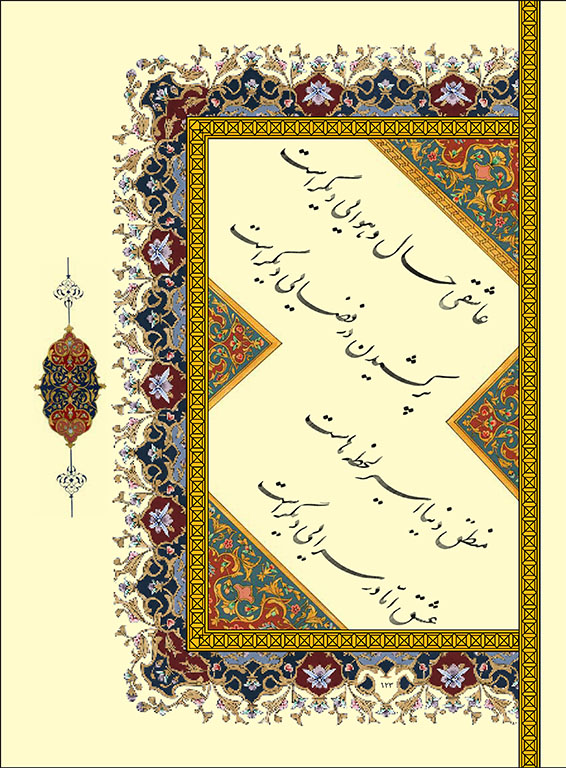 عاشقی حال و هوایی دیگر است
پر کشیدن در فضایی دیگر است
منطق دنیا اسیر لحظه هاست
عشق اما در سرایی دیگر است
۱۲۳